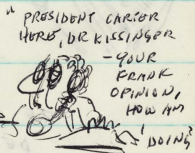 "PRESIDENT CARTER
HERE, DR KISSINGER
- YOUR
FRANK
OPINION,
HOW AM
I DOING